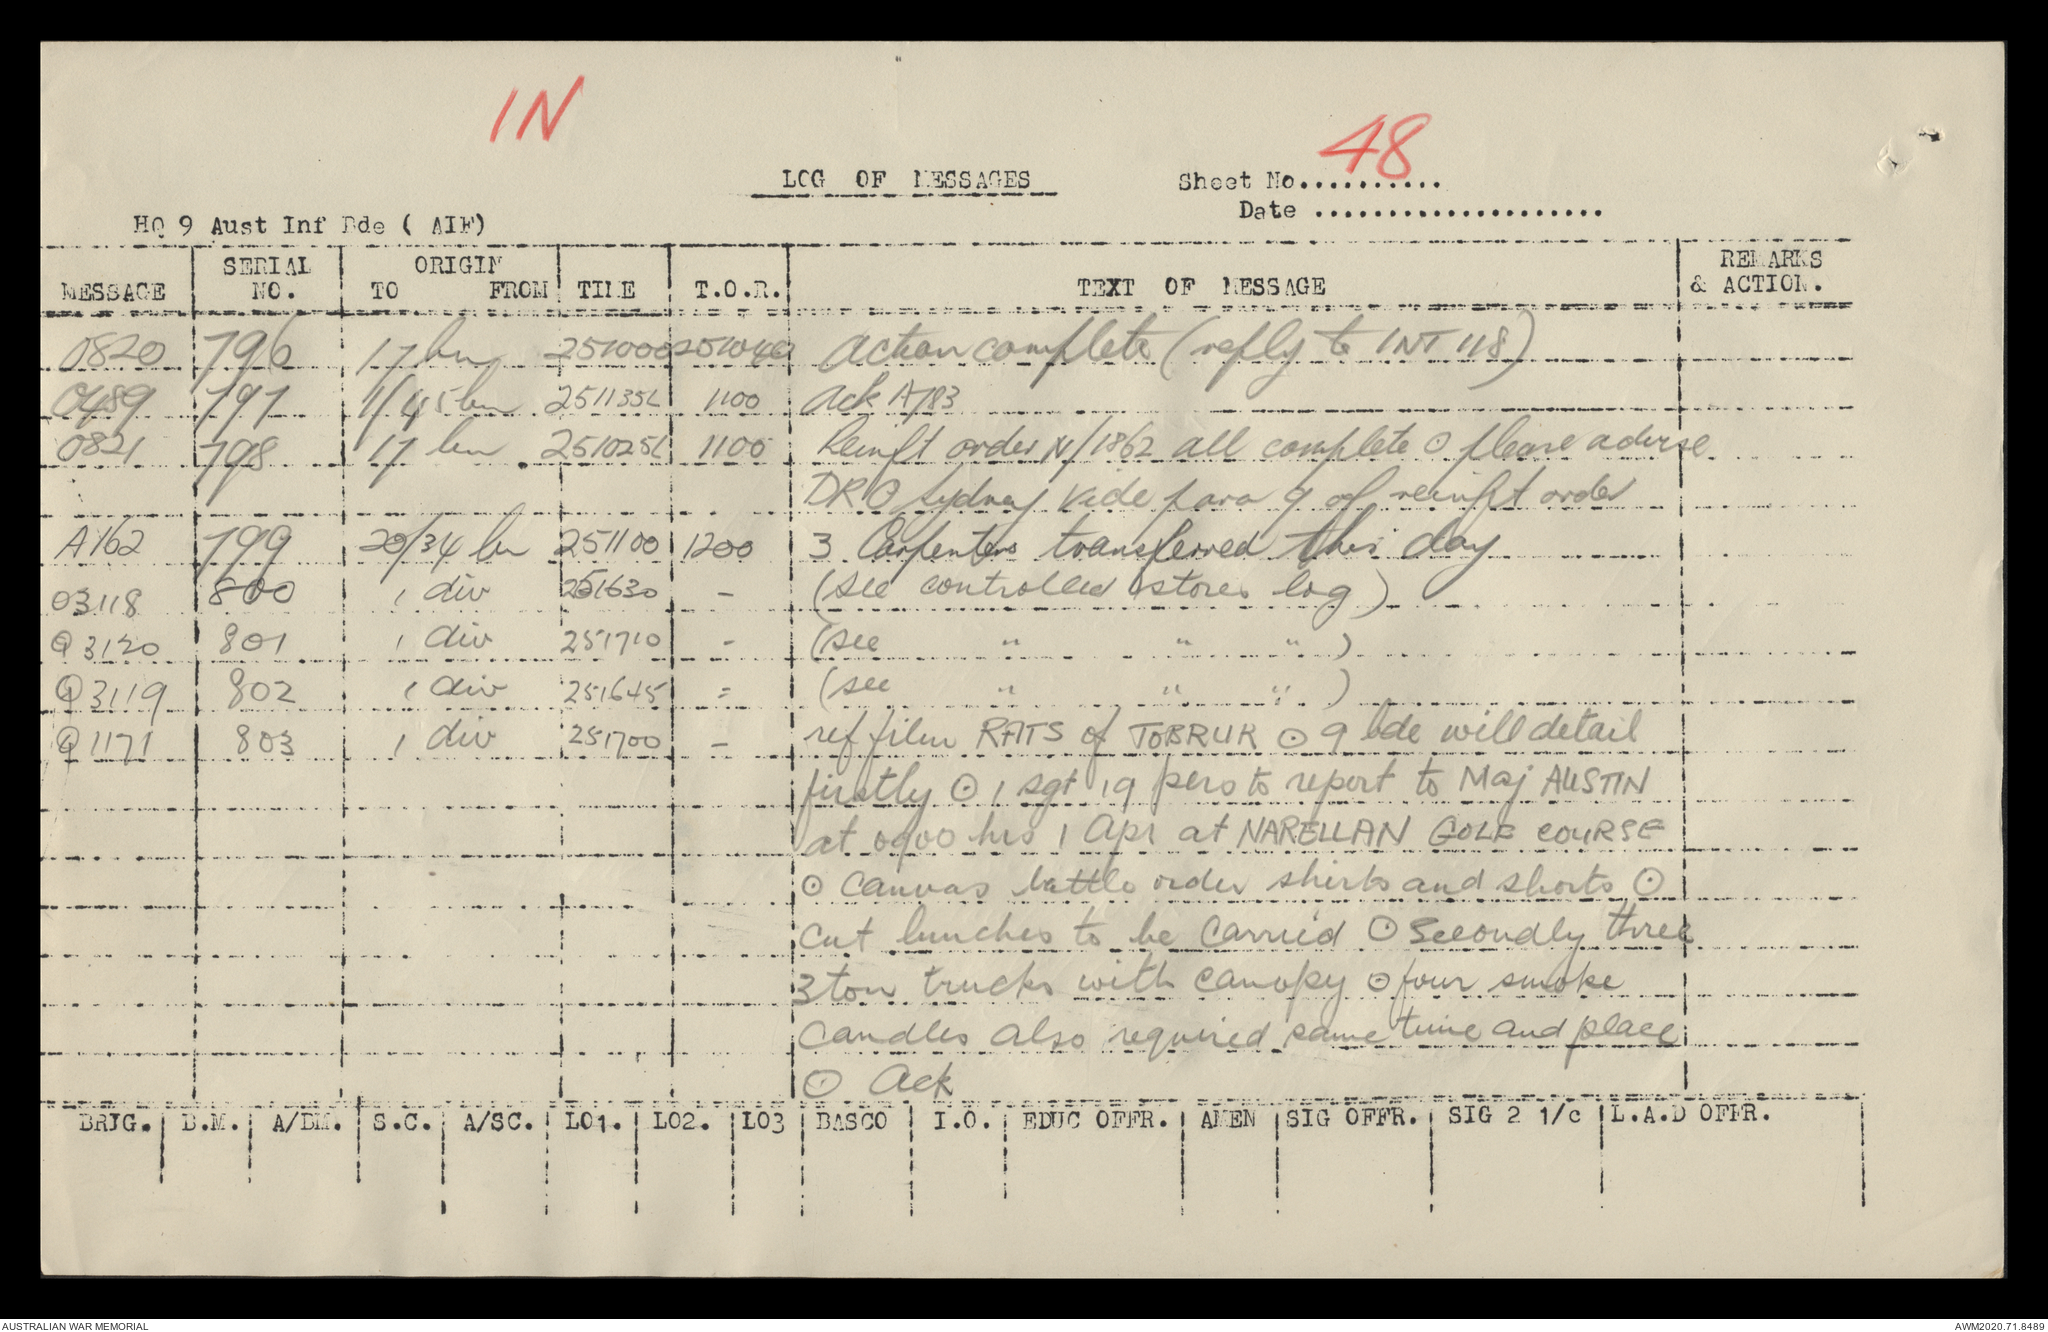 IN
48
LOG OF MESSAGES
Sheet No..........
Date ....................
HQ 9 Aust Inf Bde ( AIF)
MESSAGE SERIAL NO. ORIGIN TO FROM TIME T.O.R. TEXT OF MESSAGE REMARKS & ACTION.
0820 796 17 bn 251000 251040 action complete (reply to INT 118)
0489 797 1/45 bn 251135L 1100 ack A183
0821 798 17 bn 251025L 1100 Reinft order N/1862 all complete ⊙ please advise
DRO Sydney vide para 9 of reinft order
A162 799 20/34 bn 251100 1200 3 Carpenters transferred this day
03118 800 1 div 251630 - (see controlled stores log)
Q3120 801 1 div 251710 - (see " " ")
Q3119 802 1 div 251645 = (see " " ")
Q1171 803 1 div 251700 - ref film RATS of TOBRUK ⊙ 9 bde will detail
firstly ⊙ 1 sgt 19 pers to report to Maj AUSTIN
at 0900 hrs 1 Apr at NARELLAN GOLF COURSE
⊙ canvas battle order shirts and shorts ⊙
cut lunches to be carried ⊙ Secondly three
3 ton trucks with canopy ⊙ four smoke
candles also required same time and place
⊙ Ack
BRIG. B.M. A/BM. S.C. A/SC. LO1. LO2. LO3 BASCO I.O. EDUC OFFR. AMEN SIG OFFR. SIG 2 1/c L.A.D OFFR.
AUSTRALIAN WAR MEMORIAL
AWM2020.71.8489